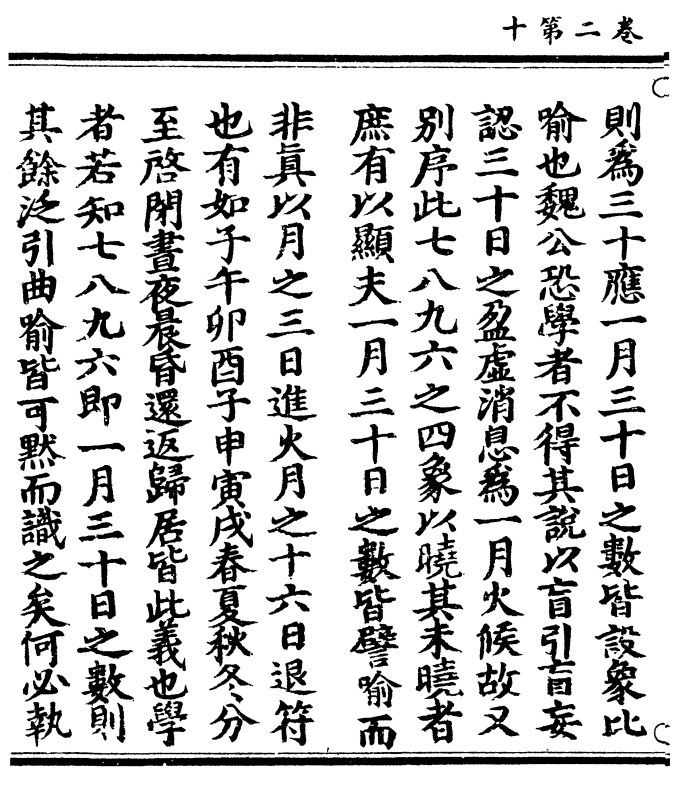 卷二第十
則爲三十應一月三十日之數皆設象比
喻也魏公恐學者不得其說以盲引盲妄
認三十日之盈虛消息爲一月火候故又
別序此七八九六之四象以曉其未曉者
庶有以顯夫一月三十日之數皆譬喻而
非眞以月之三日進火月之十六日退符
也有如子午卯酉子申寅戌春夏秋冬分
至啓閉晝夜晨昏還返歸居皆此義也學
者若知七八九六即一月三十日之數則
其餘泛引曲喻皆可默而識之矣何必執